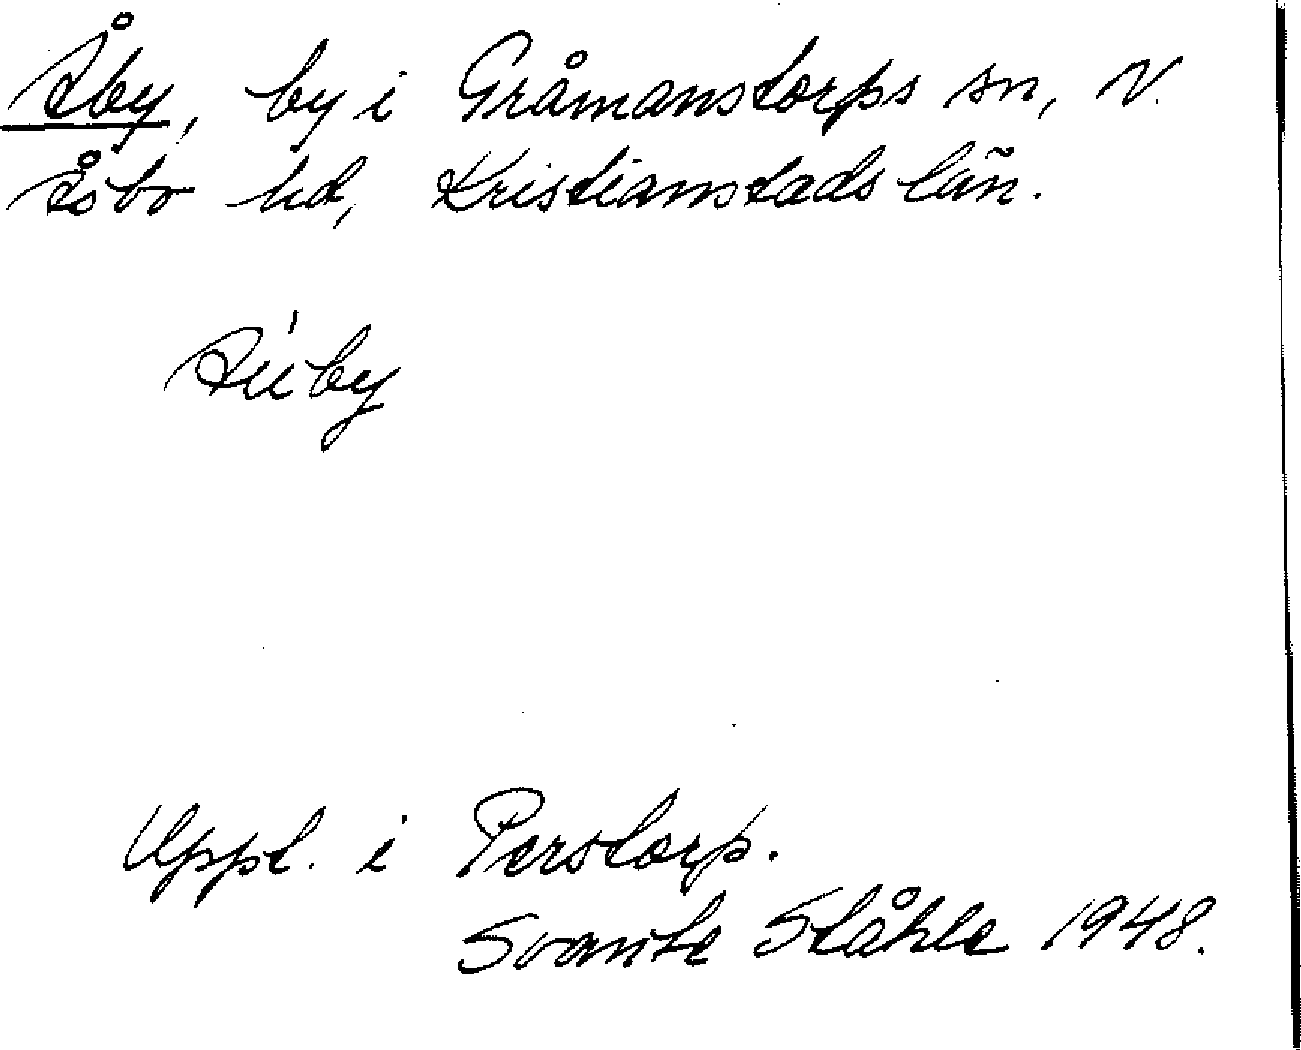 Åby, by i Gråmanstorps sn, N.
Åsbo hd, Kristianstads län.
Aúby
Uppt. i Perstorp.
Svante Ståhle 1948.